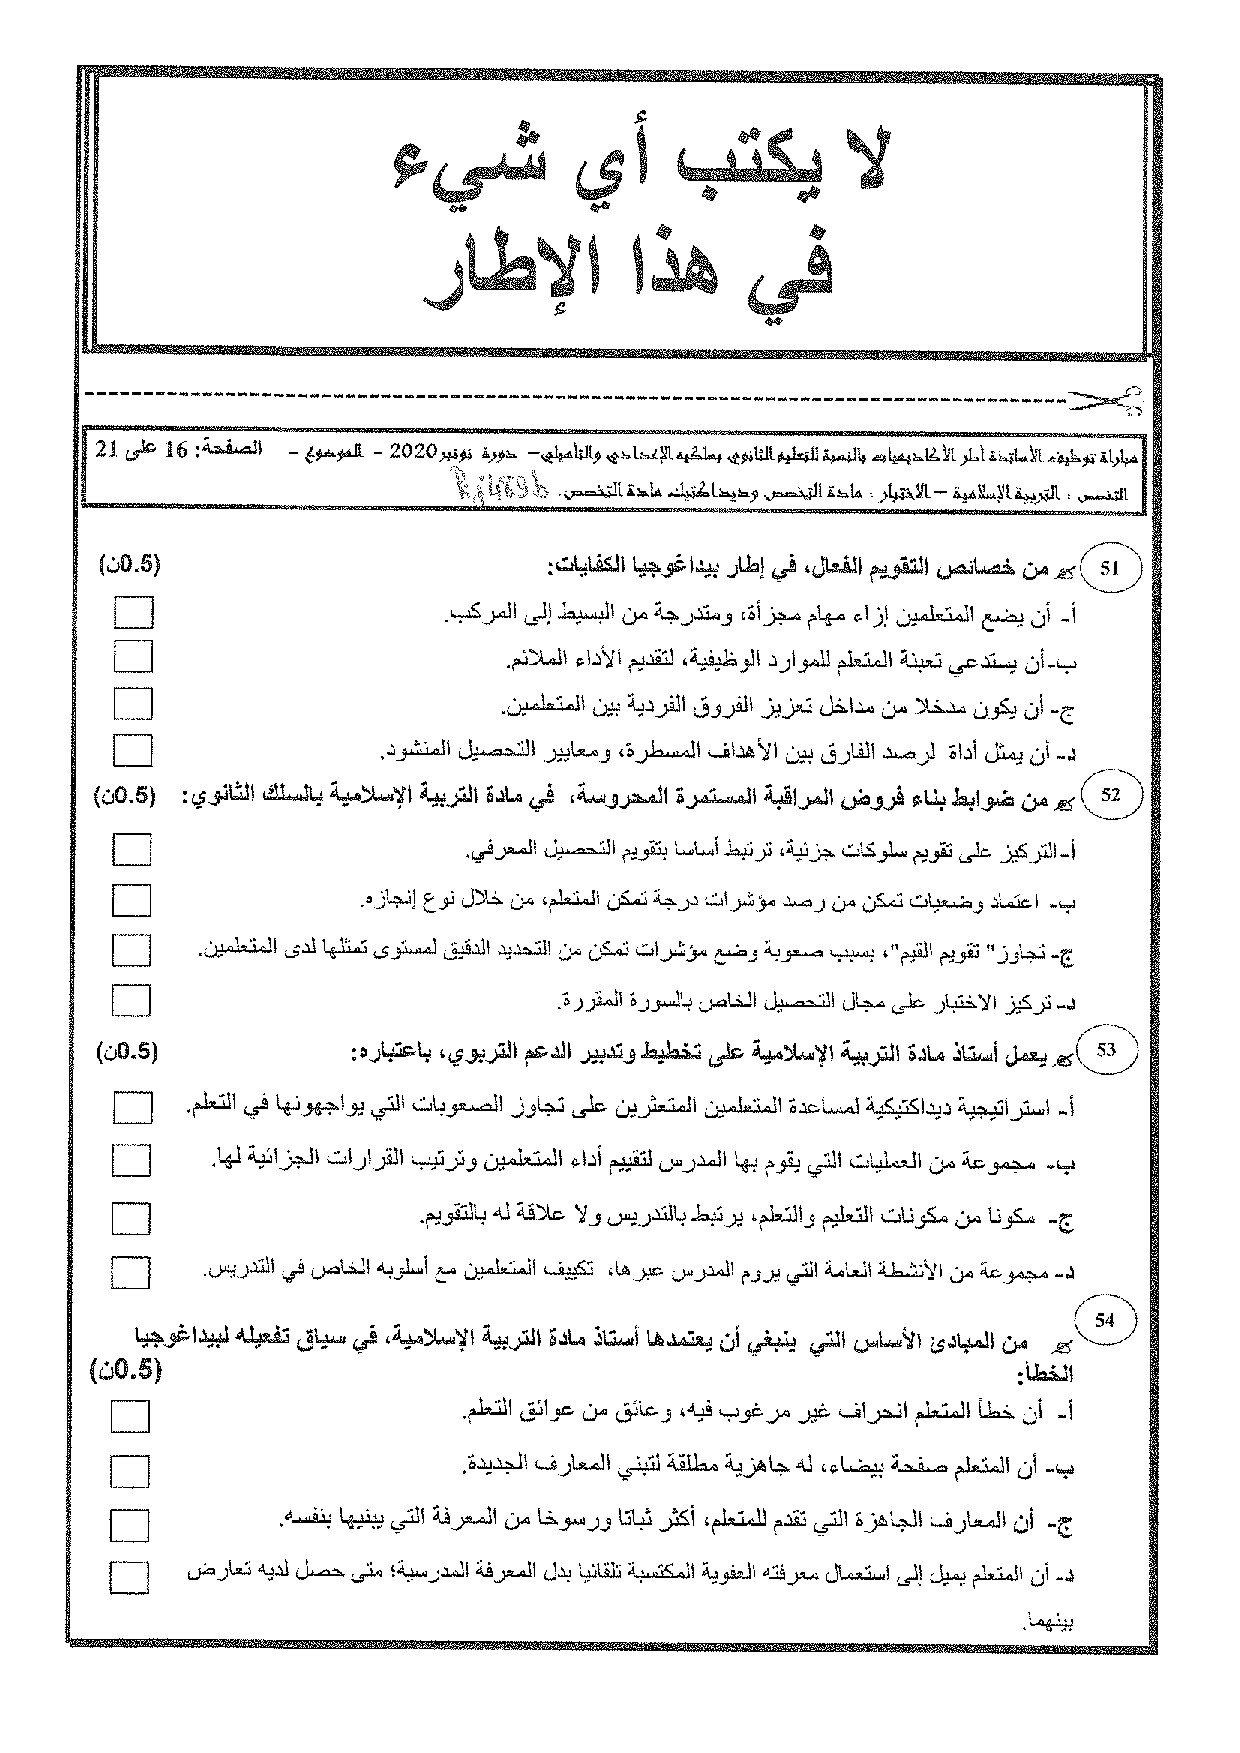 لا يكتب أي شيء
في هذا الإطار
مباراة توظيف الأساتذة أطر الأكاديميات بالنسبة للتعليم الثانوي بسلكيه الإعدادي والتأهيلي– دورة نونبر2020 - الموضوع - الصفحة: 16 على 21
التخصص : التربية الإسلامية – الاختبار : مادة التخصص وديداكتيك مادة التخصص.
51 من خصائص التقويم الفعال، في إطار بيداغوجيا الكفايات: (0.5ن)
أ- أن يضع المتعلمين إزاء مهام مجزأة، ومتدرجة من البسيط إلى المركب.
ب-أن يستدعي تعبئة المتعلم للموارد الوظيفية، لتقديم الأداء الملائم.
ج- أن يكون مدخلا من مداخل تعزيز الفروق الفردية بين المتعلمين.
د- أن يمثل أداة لرصد الفارق بين الأهداف المسطرة، ومعايير التحصيل المنشود.
52 من ضوابط بناء فروض المراقبة المستمرة المحروسة، في مادة التربية الإسلامية بالسلك الثانوي: (0.5ن)
أ-التركيز على تقويم سلوكات جزئية، ترتبط أساسا بتقويم التحصيل المعرفي.
ب- اعتماد وضعيات تمكن من رصد مؤشرات درجة تمكن المتعلم، من خلال نوع إنجازه.
ج- تجاوز "تقويم القيم"، بسبب صعوبة وضع مؤشرات تمكن من التحديد الدقيق لمستوى تمثلها لدى المتعلمين.
د- تركيز الاختبار على مجال التحصيل الخاص بالسورة المقررة.
53 يعمل أستاذ مادة التربية الإسلامية على تخطيط وتدبير الدعم التربوي، باعتباره: (0.5ن)
أ- استراتيجية ديداكتيكية لمساعدة المتعلمين المتعثرين على تجاوز الصعوبات التي يواجهونها في التعلم.
ب- مجموعة من العمليات التي يقوم بها المدرس لتقييم أداء المتعلمين وترتيب القرارات الجزائية لها.
ج- مكونا من مكونات التعليم والتعلم، يرتبط بالتدريس ولا علاقة له بالتقويم.
د- مجموعة من الأنشطة العامة التي يروم المدرس عبرها، تكييف المتعلمين مع أسلوبه الخاص في التدريس.
54 من المبادئ الأساس التي ينبغي أن يعتمدها أستاذ مادة التربية الإسلامية، في سياق تفعيله لبيداغوجيا
الخطأ: (0.5ن)
أ- أن خطأ المتعلم انحراف غير مرغوب فيه، وعائق من عوائق التعلم.
ب- أن المتعلم صفحة بيضاء، له جاهزية مطلقة لتبني المعارف الجديدة.
ج- أن المعارف الجاهزة التي تقدم للمتعلم، أكثر ثباتا ورسوخا من المعرفة التي يبنيها بنفسه.
د- أن المتعلم يميل إلى استعمال معرفته العفوية المكتسبة تلقائيا بدل المعرفة المدرسية؛ متى حصل لديه تعارض
بينهما.